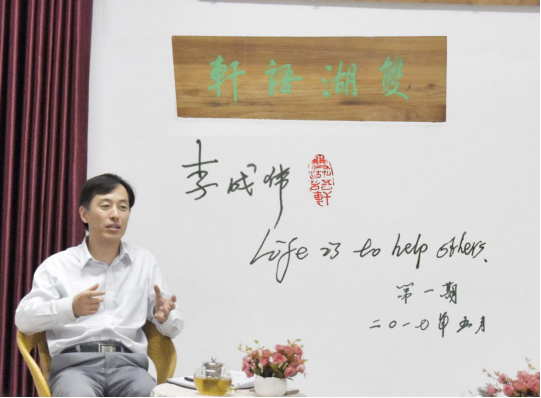 雙湖語軒
李成伟
Life is to help others.
第一期
二〇一七年五月